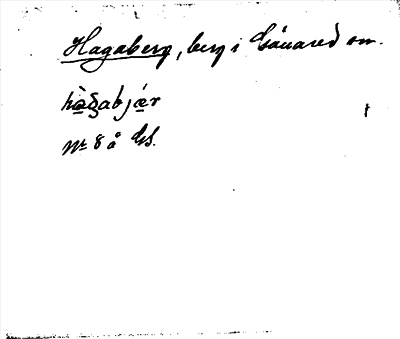 Hagaberg, berg i Gånared sn.
hàgabjær
Nr 8 å GS.